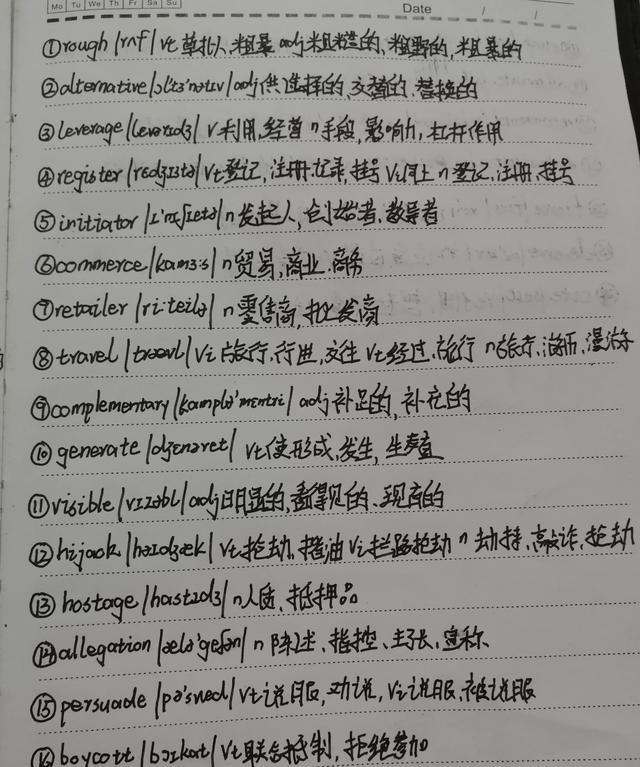 Mo Tu We Th Fr Sa Su Date / /
①rough /rʌf/ vt 草拟, 粗暴 adj 粗糙的, 粗野的, 粗暴的
②alternative /ɔl'tɜ'nətɪv/ adj 供选择的, 交替的, 替换的
③leverage /levərɪdʒ/ v 利用, 经营 n 手段, 影响力, 杠杆作用
④register /redʒɪstə/ vt登记, 注册, 记录, 挂号 vi同上 n 登记, 注册, 挂号
⑤initiator /ɪ'nɪʃɪeɪtə/ n 发起人, 创始者, 教导者
⑥commerce /kɑmɜːs/ n 贸易, 商业, 商务
⑦retailer /riːteilə/ n 零售商, 批发商
⑧travel /trævl/ vi 旅行, 行进, 交往 vt 经过, 旅行 n 旅行, 游历, 漫游
⑨complementary /kɑmplə'mentri/ adj 补足的, 补充的
⑩generate /dʒɛnəret/ vt使形成, 发生, 生产
⑪visible /vɪzəbl/ adj明显的, 看得见的, 现存的
⑫hijack /haɪdʒæk/ vt抢劫, 揩油 vi拦路抢劫 n 劫持, 敲诈, 抢劫
⑬hostage /hɑstɪdʒ/ n人质, 抵押品
⑭allegation /ælə'geʃən/ n 陈述, 指控, 主张, 宣称
⑮persuade /pə'swed/ vt说服, 劝说, vi说服, 被说服
⑯boycott /bɔɪkɑt/ vt联合抵制, 拒绝参加